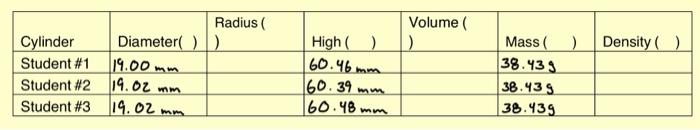 Radius ( Volume (
Cylinder Diameter( ) ) High ( ) ) Mass ( ) Density ( )
Student #1 19.00 mm 60.46 mm 38.43g
Student #2 19.02 mm 60.39 mm 38.43g
Student #3 19.02 mm 60.48 mm 38.43g